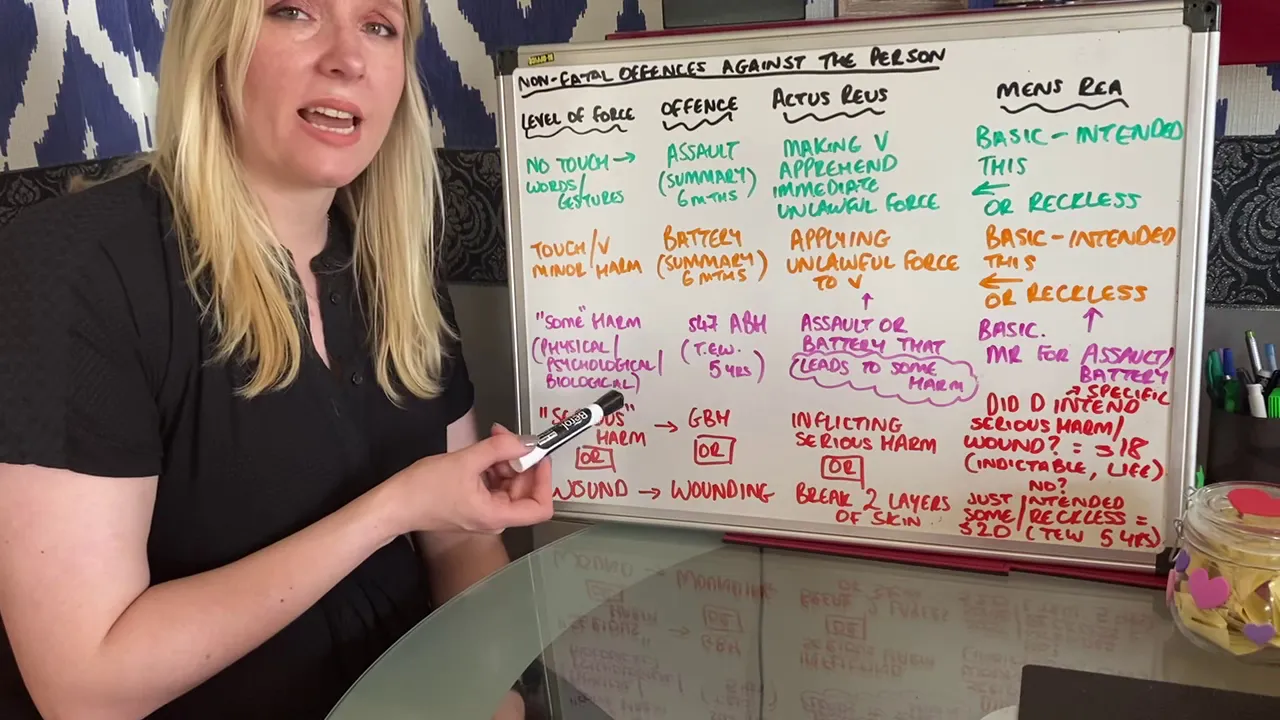 NON-FATAL OFFENCES AGAINST THE PERSON
LEVEL OF FORCE
OFFENCE
ACTUS REUS
MENS REA
NO TOUCH →
WORDS/
GESTURES
ASSAULT
(SUMMARY)
6 MTHS
MAKING V
APPREHEND
IMMEDIATE
UNLAWFUL FORCE
BASIC - INTENDED
THIS
←
OR RECKLESS
TOUCH/V
MINOR HARM
BATTERY
(SUMMARY)
6 MTHS
APPLYING
UNLAWFUL FORCE
TO V
BASIC - INTENDED
THIS
←
OR RECKLESS
"SOME" HARM
(PHYSICAL/
PSYCHOLOGICAL/
BIOLOGICAL)
S47 ABH
(T.E.W.
5 YRS)
↑
ASSAULT OR
BATTERY THAT
LEADS TO SOME
HARM
BASIC.
↑
MR FOR ASSAULT/
BATTERY
HARM
OR
→ GBH
OR
INFLICTING
SERIOUS HARM
OR
↗ SPECIFIC
DID D INTEND
SERIOUS HARM/
WOUND? = S18
(INDICTABLE, LIFE)
WOUND → WOUNDING
BREAK 2 LAYERS
OF SKIN
NO?
JUST INTENDED
SOME/RECKLESS =
S20 (TEW 5 YRS)
Berol